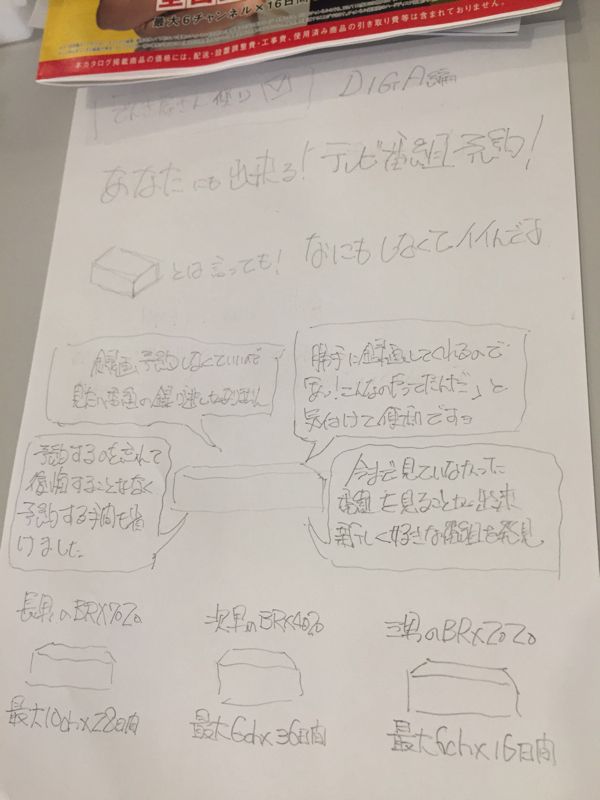 最大6チャンネル×16日間
本カタログ掲載商品の価格には、配送・設置調整費・工事費、使用済み商品の引き取り費等は含まれておりません。
でんき屋さん便り
DIGA編
あなたにも出来る！テレビ番組予約！
とは言っても！なにもしなくてイイんです
録画予約しなくていいので
見たい番組の録り逃しもありません
勝手に録画してくれるので
「あっ！こんなのやってたんだ」と
気付けて便利ですョ
予約するのを忘れて
後悔することもなく
予約する手間も省
けました
今まで見ていなかった
番組を見ることが出来
新しく好きな番組も発見
長男のBRX7020
次男のBRX4020
三男のBRX2020
最大10ch×28日間
最大6ch×36日間
最大6ch×16日間